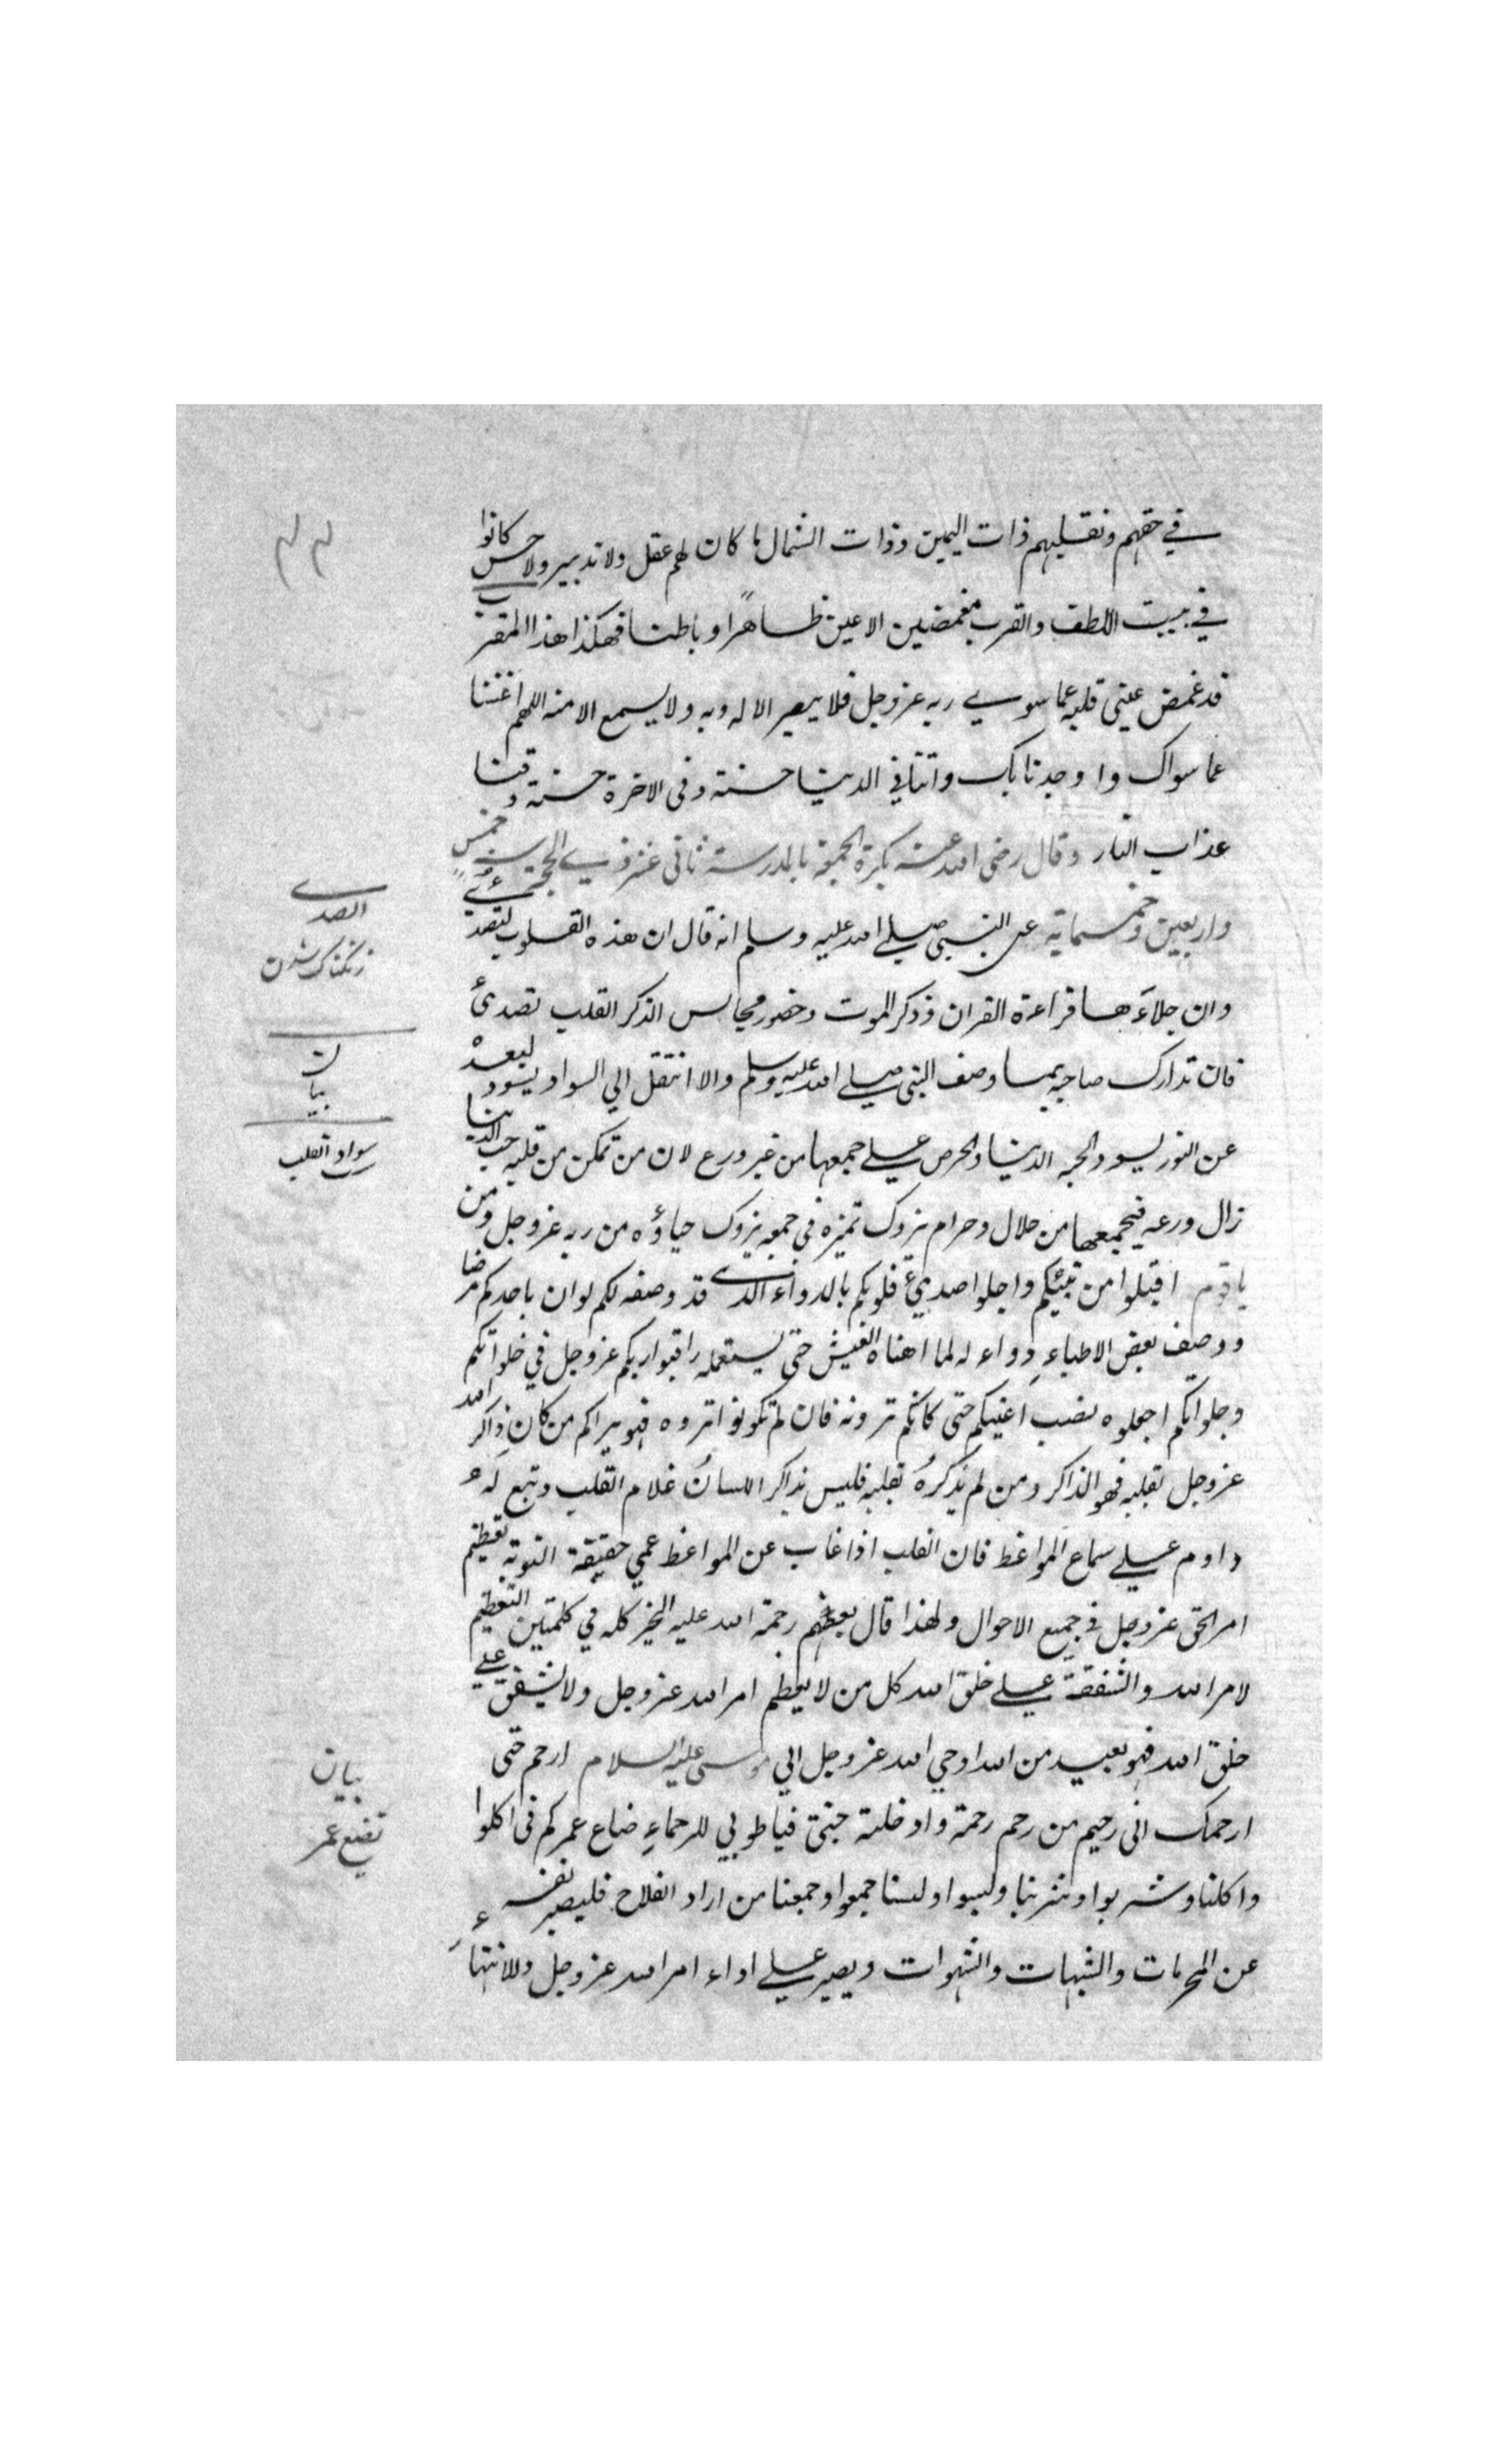 في حقهم ونقلبهم ذات اليمين وذات الشمال ما كان لهم عقل ولا تدبير ولا حس كانوا
في بيت اللطف والقرب مغمضين الاعين ظاهرًا وباطنا فهكذا هذا المقرب
قد غمض عيني قلبه عما سوي ربه عز وجل فلا يبصر الا له وبه ولا يسمع الا منه اللهم اغننا
عما سواك وا وجدنا بك واتنا في الدنيا حسنة وفي الاخرة حسنة وقنا
عذاب النار وقال رضي الله عنه بكرة الجمعة بالمدرسة ثاني عشر ذي الحجة سنة خمس
واربعين وخمسماية عن النبي صلي الله عليه وسلم انه قال ان هذه القلوب لتصدئ
وان جلاءها قراءة القران وذكر الموت وحضور مجالس الذكر القلب تصدئ
فان تدارك صاحبه بما وصف النبي صلي الله عليه وسلم والا انتقل الي السواد يسود لبعده
عن النور يسود لحبه الدنيا والحرص علي جمعها من غير ورع لان من تمكن من قلبه حب الدنيا
زال ورعه فيجمعها من حلال وحرام يزول تميزه في جمعه يزول حياؤه من ربه عز وجل ومن
يا قوم اقبلوا من نبيكم واجلوا صديئ قلوبكم بالدواء الذي قد وصفه لكم لو ان باحدكم مرضا
ووصف بعض الاطباء دواء له لما اهناه العيش حتى يستعمله راقبوا ربكم عز وجل في خلواتكم
وجلواتكم اجعلوه نصب اعينكم حتى كانكم ترونه فان لم تكونوا تروه فهو يراكم من كان ذاكر الله
عز وجل بقلبه فهو الذاكر ومن لم يذكرهُ بقلبه فليس بذاكر اللسانُ غلام القلب وتبع لَه
داوم علي سماع المواعظ فان القلب اذا غاب عن المواعظ عمي حقيقة التوبة تعظيم
امر الحق عز وجل في جميع الاحوال ولهذا قال بعضهم رحمة الله عليه الخير كله في كلمتين التعظيم
لامر الله والشفقة علي خلق الله كل من لا يعظم امر الله عز وجل ولا يشفق علي
خلق الله فهو بعيد من الله اوحي الله عز وجل الي موسى عليه السلام ارحم حتى
ارحمك اني رحيم من رحم رحمة وادخلته جنتي فيا طوبي للرحماء ضاع عمركم في اكلوا
واكلنا وشربوا وشربنا ولبسوا ولبسنا جمعوا وجمعنا من اراد الفلاح فليصبر نفسه
عن المحرمات والشبهات والشهوات ويصبر علي اداء امر الله عز وجل وللانتهاء
الصدي
زنكناك شدن
بيان
سواد القلب
بيان
تضيع عمر